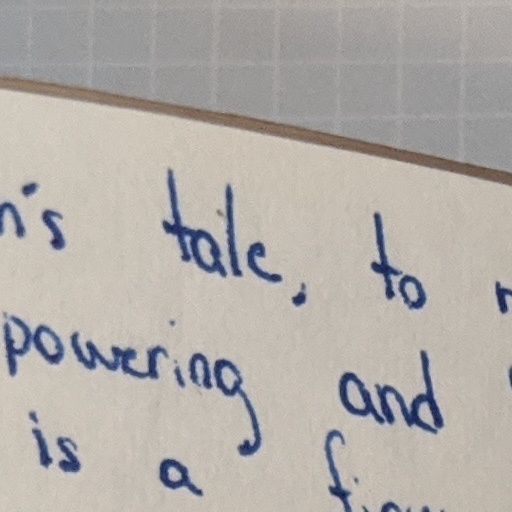 n's tale, to
powering and
is a